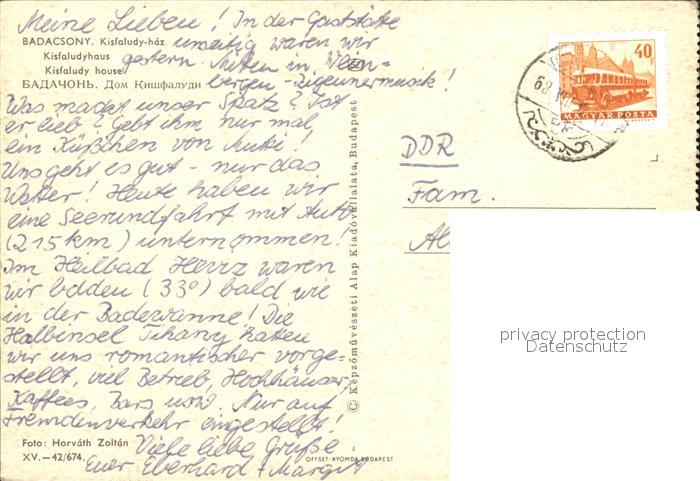 Meine Lieben! In der Gaststäte
BADACSONY. Kisfaludy-ház umseitig waren wir
Kisfaludyhaus gestern. Mitten in Wein-
Kisfaludy house
БАДАЧОНЬ. Дом Кишфалуди bergen - Zigeunermusik!
Was macht unser Spatz? Ist
er lieb? Gebt ihm nur mal
ein Küßchen von Mutti!
Uns geht es gut - nur das
Wetter! Heute haben wir
eine Seerundfahrt mit Auto
(215 km) unternommen!
Im Heilbad waren
wir baden (33°) bald wie
in der Badewanne! Die
Halbinsel Tihany hatten
wir uns romantischer vorge=
stellt, viel Betrieb, Hochhäuser,
Kaffees, Bars usw. Nur auf
Fremdenverkehr eingestellt!
Foto: Horváth Zoltán Viele liebe Grüße
XV.—42/674. Euer Eberhard + Margit
OFFSET-NYOMDA BUDAPEST
© Képzőművészeti Alap Kiadóvállalata, Budapest
40 f
MAGYAR POSTA
DDR
Fam.
privacy protection
Datenschutz